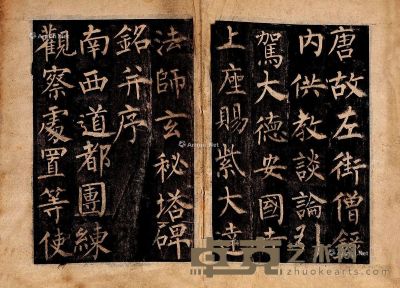 唐故左街僧錄
内供教談論引
駕大德安國寺
上座賜紫大達
法師玄秘塔碑
銘并序
南西道都團練
觀察處置等使
卓克艺术网
zhuokearts.com